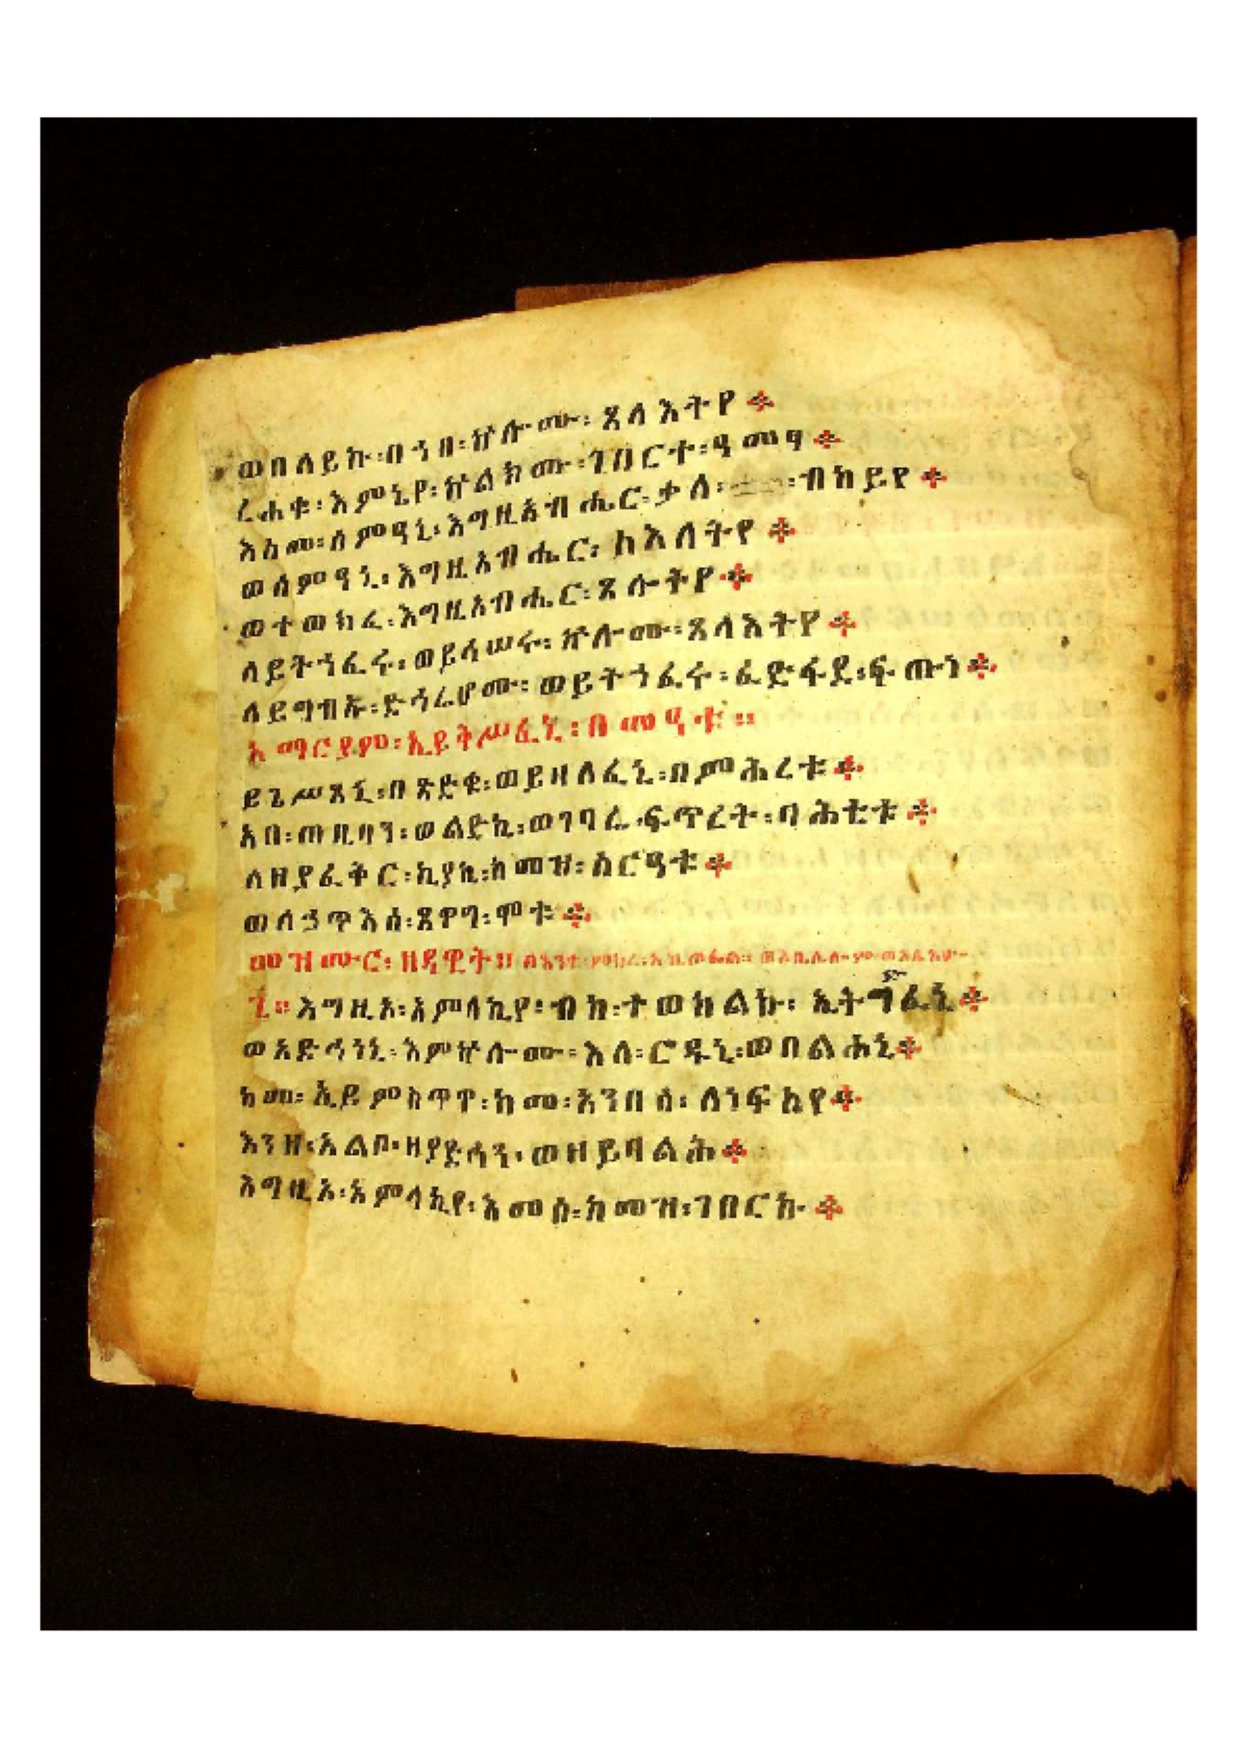 ወበለይኩ፡በኀበ፡ኵሉሙ፡ጸላእትየ።
ረሐቁ፡እምኔየ፡ኵልክሙ፡ገበርተ፡ዓመፃ።
እስመ፡ሰምዓኒ፡እግዚአብሔር፡ቃለ፡ብካይየ።
ወሰምዓኒ፡እግዚአብሔር፡ስእለትየ።
ወተወክፈ፡እግዚአብሔር፡ጸሎትየ።
ለይትኀፈሩ፡ወይኅሠሩ፡ኵሎሙ፡ጸላእትየ።
ለይግብኡ፡ድኅሬሆሙ፡ወይትኀፈሩ፡ፈድፋደ፡ፍጡነ።
ኦማርያም፡ኢይቅሥፈኒ፡በመዓቱ።
ይጌሥጸኒ፡በጽድቁ፡ወይዘለፈኒ፡በምሕረቱ።
አበ፡ጠቢባን፡ወልድኪ፡ወገባሬ፡ፍጥረት፡ባሕቲቱ።
ለዘያፈቅር፡ኪያኪ፡ከመዝ፡ስርዓቱ።
ወለኃጥእሰ፡ጸዋግ፡ሞቱ።
መዝሙር፡ዘዳዊት።
፯።እግዚኦ፡አምላኪየ፡ብከ፡ተወከልኩ፡ኢትግድፈኒ።
ወአድኅነኒ፡እምኵሉሙ፡እለ፡ሮዱኒ፡ወበልሐኒ።
ከመ፡ኢይምስጥዋ፡ከመ፡አንበሳ፡ለነፍስየ።
እንዘ፡አልቦ፡ዘያድኅን፡ወዘይባልሕ።
እግዚኦ፡አምላኪየ፡እመሰ፡ከመዝ፡ገበርኩ።